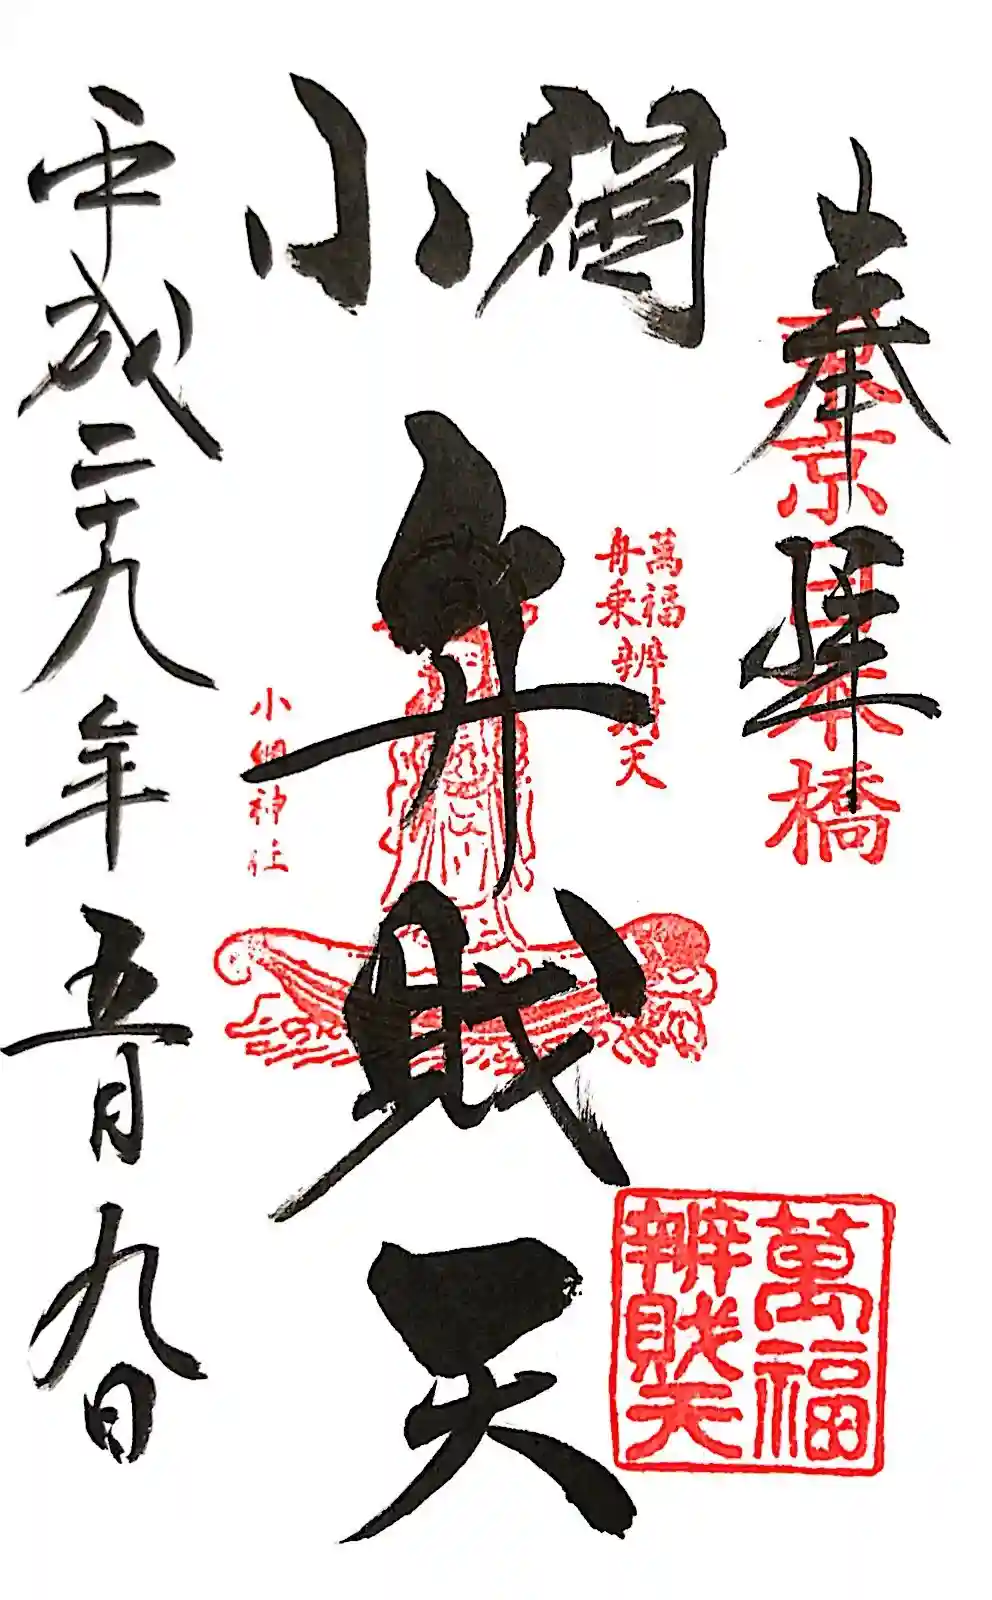 奉拝
東京日本橋
小網
弁財天
萬福
舟乗辨財天
小網神社
萬福
辨財天
平成二十九年五月九日